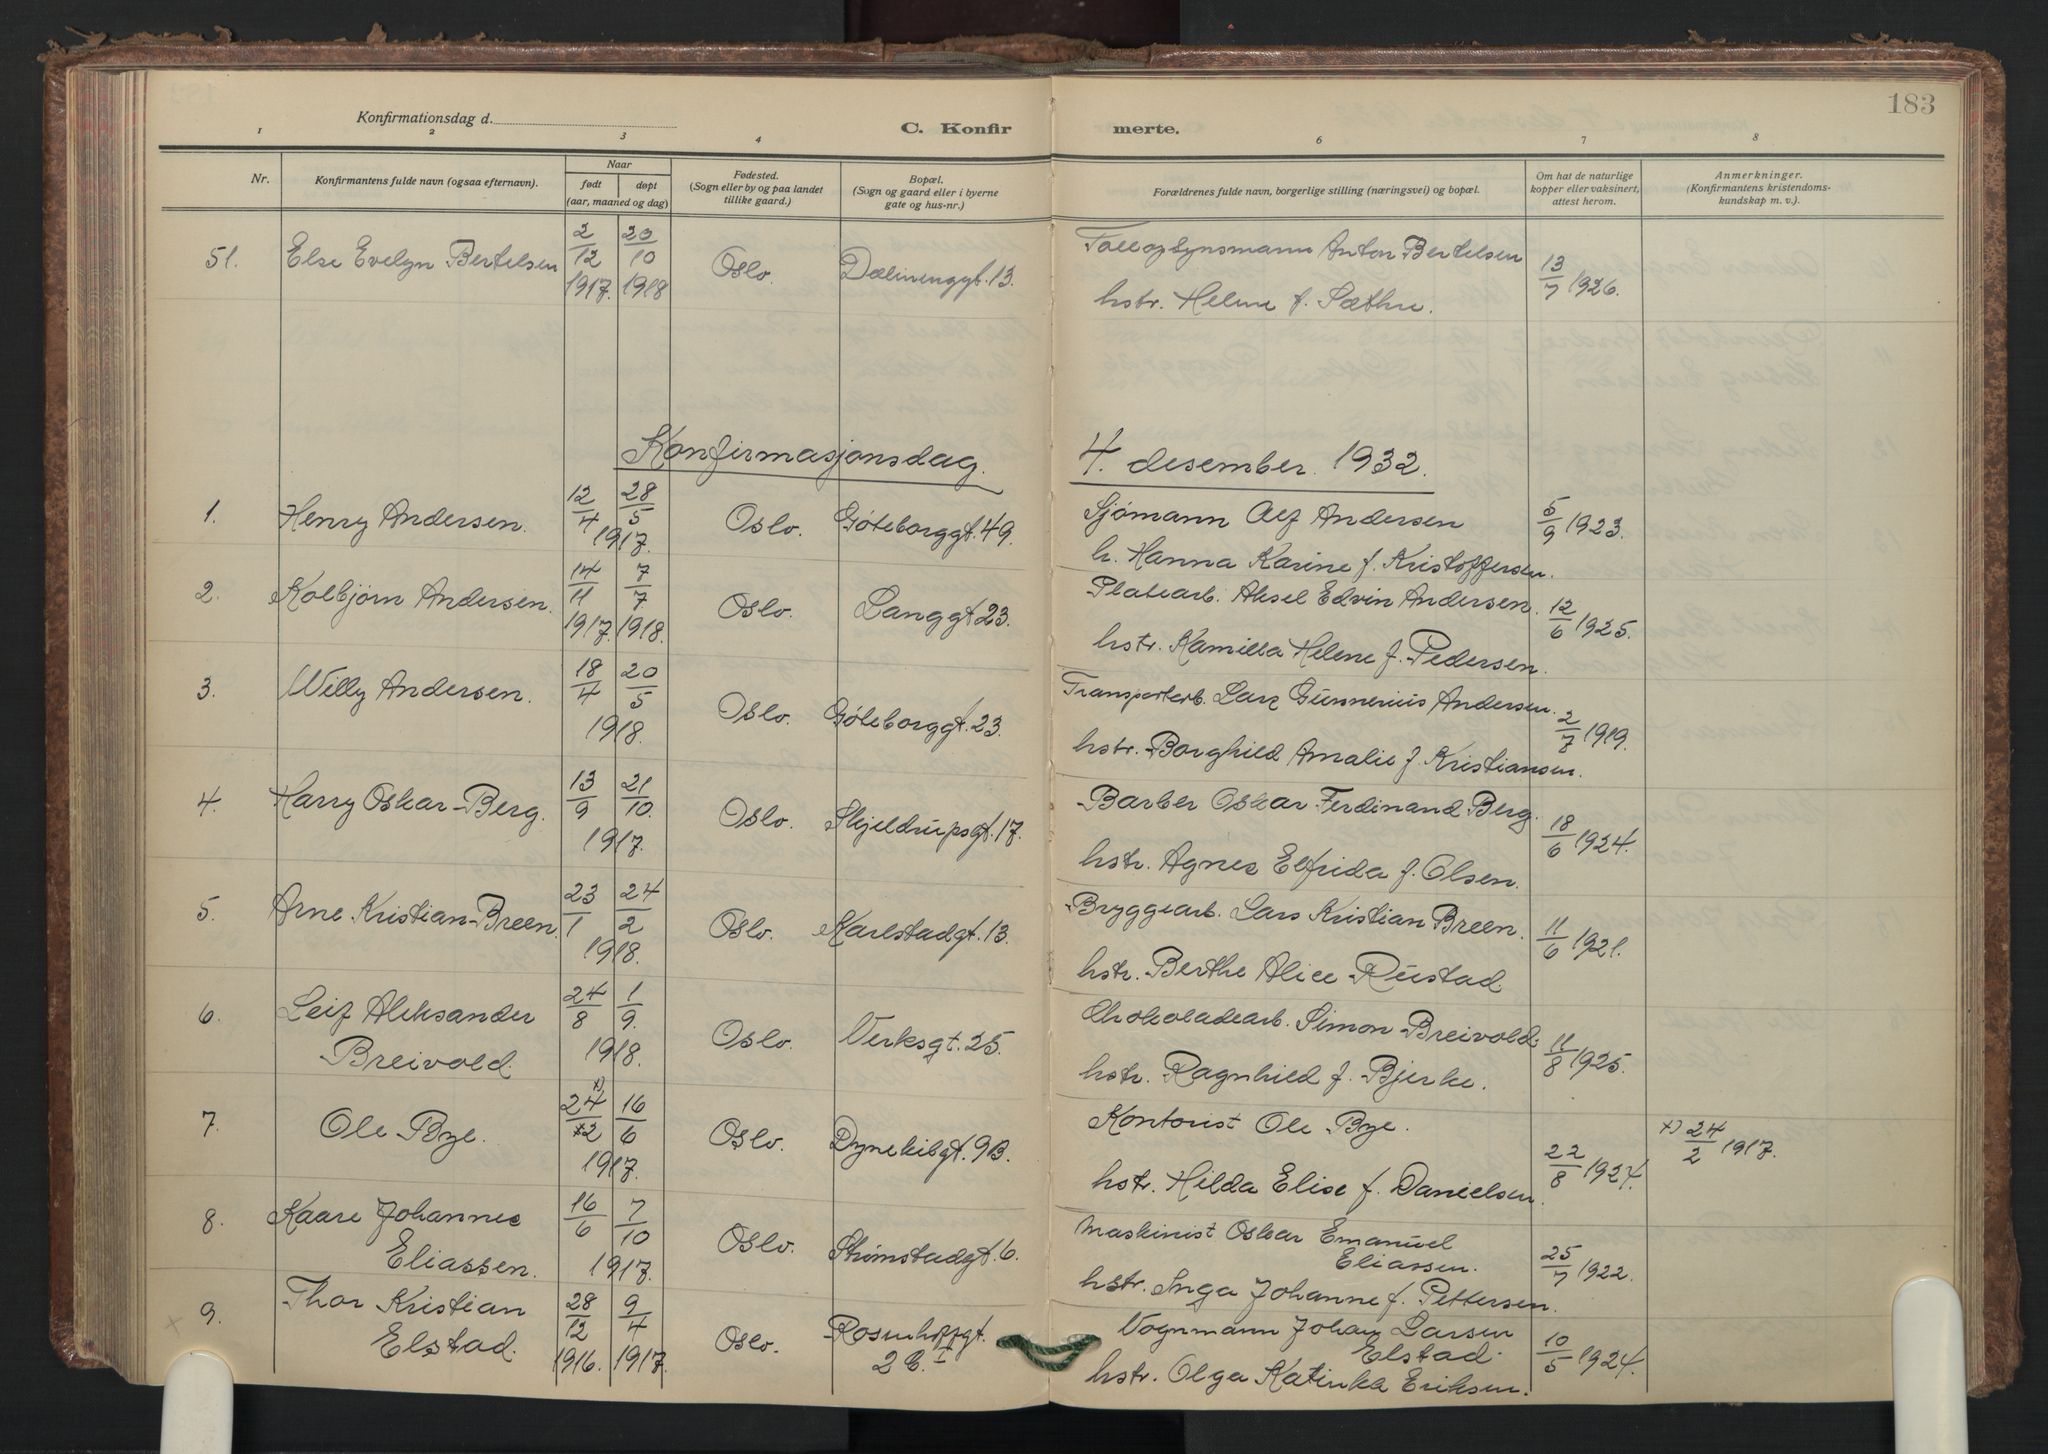 183
Konfirmationsdag d.
C. Konfir merte.
1 2 3 4 5 6 7 8
Nr.
Konfirmantens fulde navn (ogsaa efternavn).
Naar
født døpt
(aar, maaned og dag)
Fødested.
(Sogn eller by og paa landet
tillike gaard.)
Bopæl.
(Sogn og gaard eller i byerne
gate og hus-nr.)
Forældrenes fulde navn, borgerlige stilling (næringsvei) og bopæl.
Om hat de naturlige
kopper eller vaksinert,
attest herom.
Anmerkninger.
(Konfirmantens kristendoms-
kundskap m. v.).
51. Else Evelyn Bertelsen 2/12 1917. 23/10 1918 Oslo. Dælenenggt. 13. Tolleopsynsmann Anton Bertelsen 13/7 1926.
hstr. Helene f. Sæthre.
Konfirmasjonsdag 4. desember 1932.
1. Henry Andersen. 12/4 28/5 1917. Oslo. Göteborggt. 49. Sjömann Alf Andersen 5/9 1923.
h. Hanna Karine f. Kristoffersen.
2. Kolbjørn Andersen. 14/11 1917. 7/7 1918. Oslo. Langgt 23. Platearb. Aksel Edvin Andersen. 12/6 1925.
hstr. Kamilla Helene f. Pedersen.
3. Willy Andersen. 18/4 20/5 1918. Oslo. Göteborggt. 23. Transportarb. Lars Gunnerius Andersen. 2/7 1919.
hstr. Borghild Amalie f. Kristiansen.
4. Harry Oskar Berg. 13/9 21/10. 1917. Oslo. Skjeldrupsgt. 17. Barber Oskar Ferdinand Berg. 18/6 1924.
hstr. Agnes Elfrida f. Olsen.
5. Arne Kristian Breen. 23/1 24/2 1918. Oslo. Karlstadgt. 13. Bryggearb. Lars Kristian Breen. 11/6 1921.
hstr. Berthe Alice Rustad.
6. Leif Aleksander 24/8 1/9. 1918. Oslo. Verksgt. 25. Chokoladearb. Simon Breivold. 11/8 1925.
Breivold. hstr. Ragnhild f. Bjerke.
7. Ole Bye. x) 24/2 16/6 1917. Oslo. Dynekilgt. 9B. Kontorist Ole Bye. 22/8 1924. x) 24/2 1917.
hstr. Hilda Elise f. Danielsen.
8. Kaare Johannes 16/6 7/10 1917. Oslo. Strømstadgt. 6. Maskinist Oskar Emanuel
Eliassen. Eliassen. 25/7 1922.
hstr. Inga Johanne f. Pettersen.
x 9. Thor Kristian 28/12 1916. 9/4 1917. Oslo. Rosenhoffgt. Vognmann Johan Larsen
Elstad. 2 b. I Elstad. 10/5 1924.
hstr. Olga Katinka Eriksen.